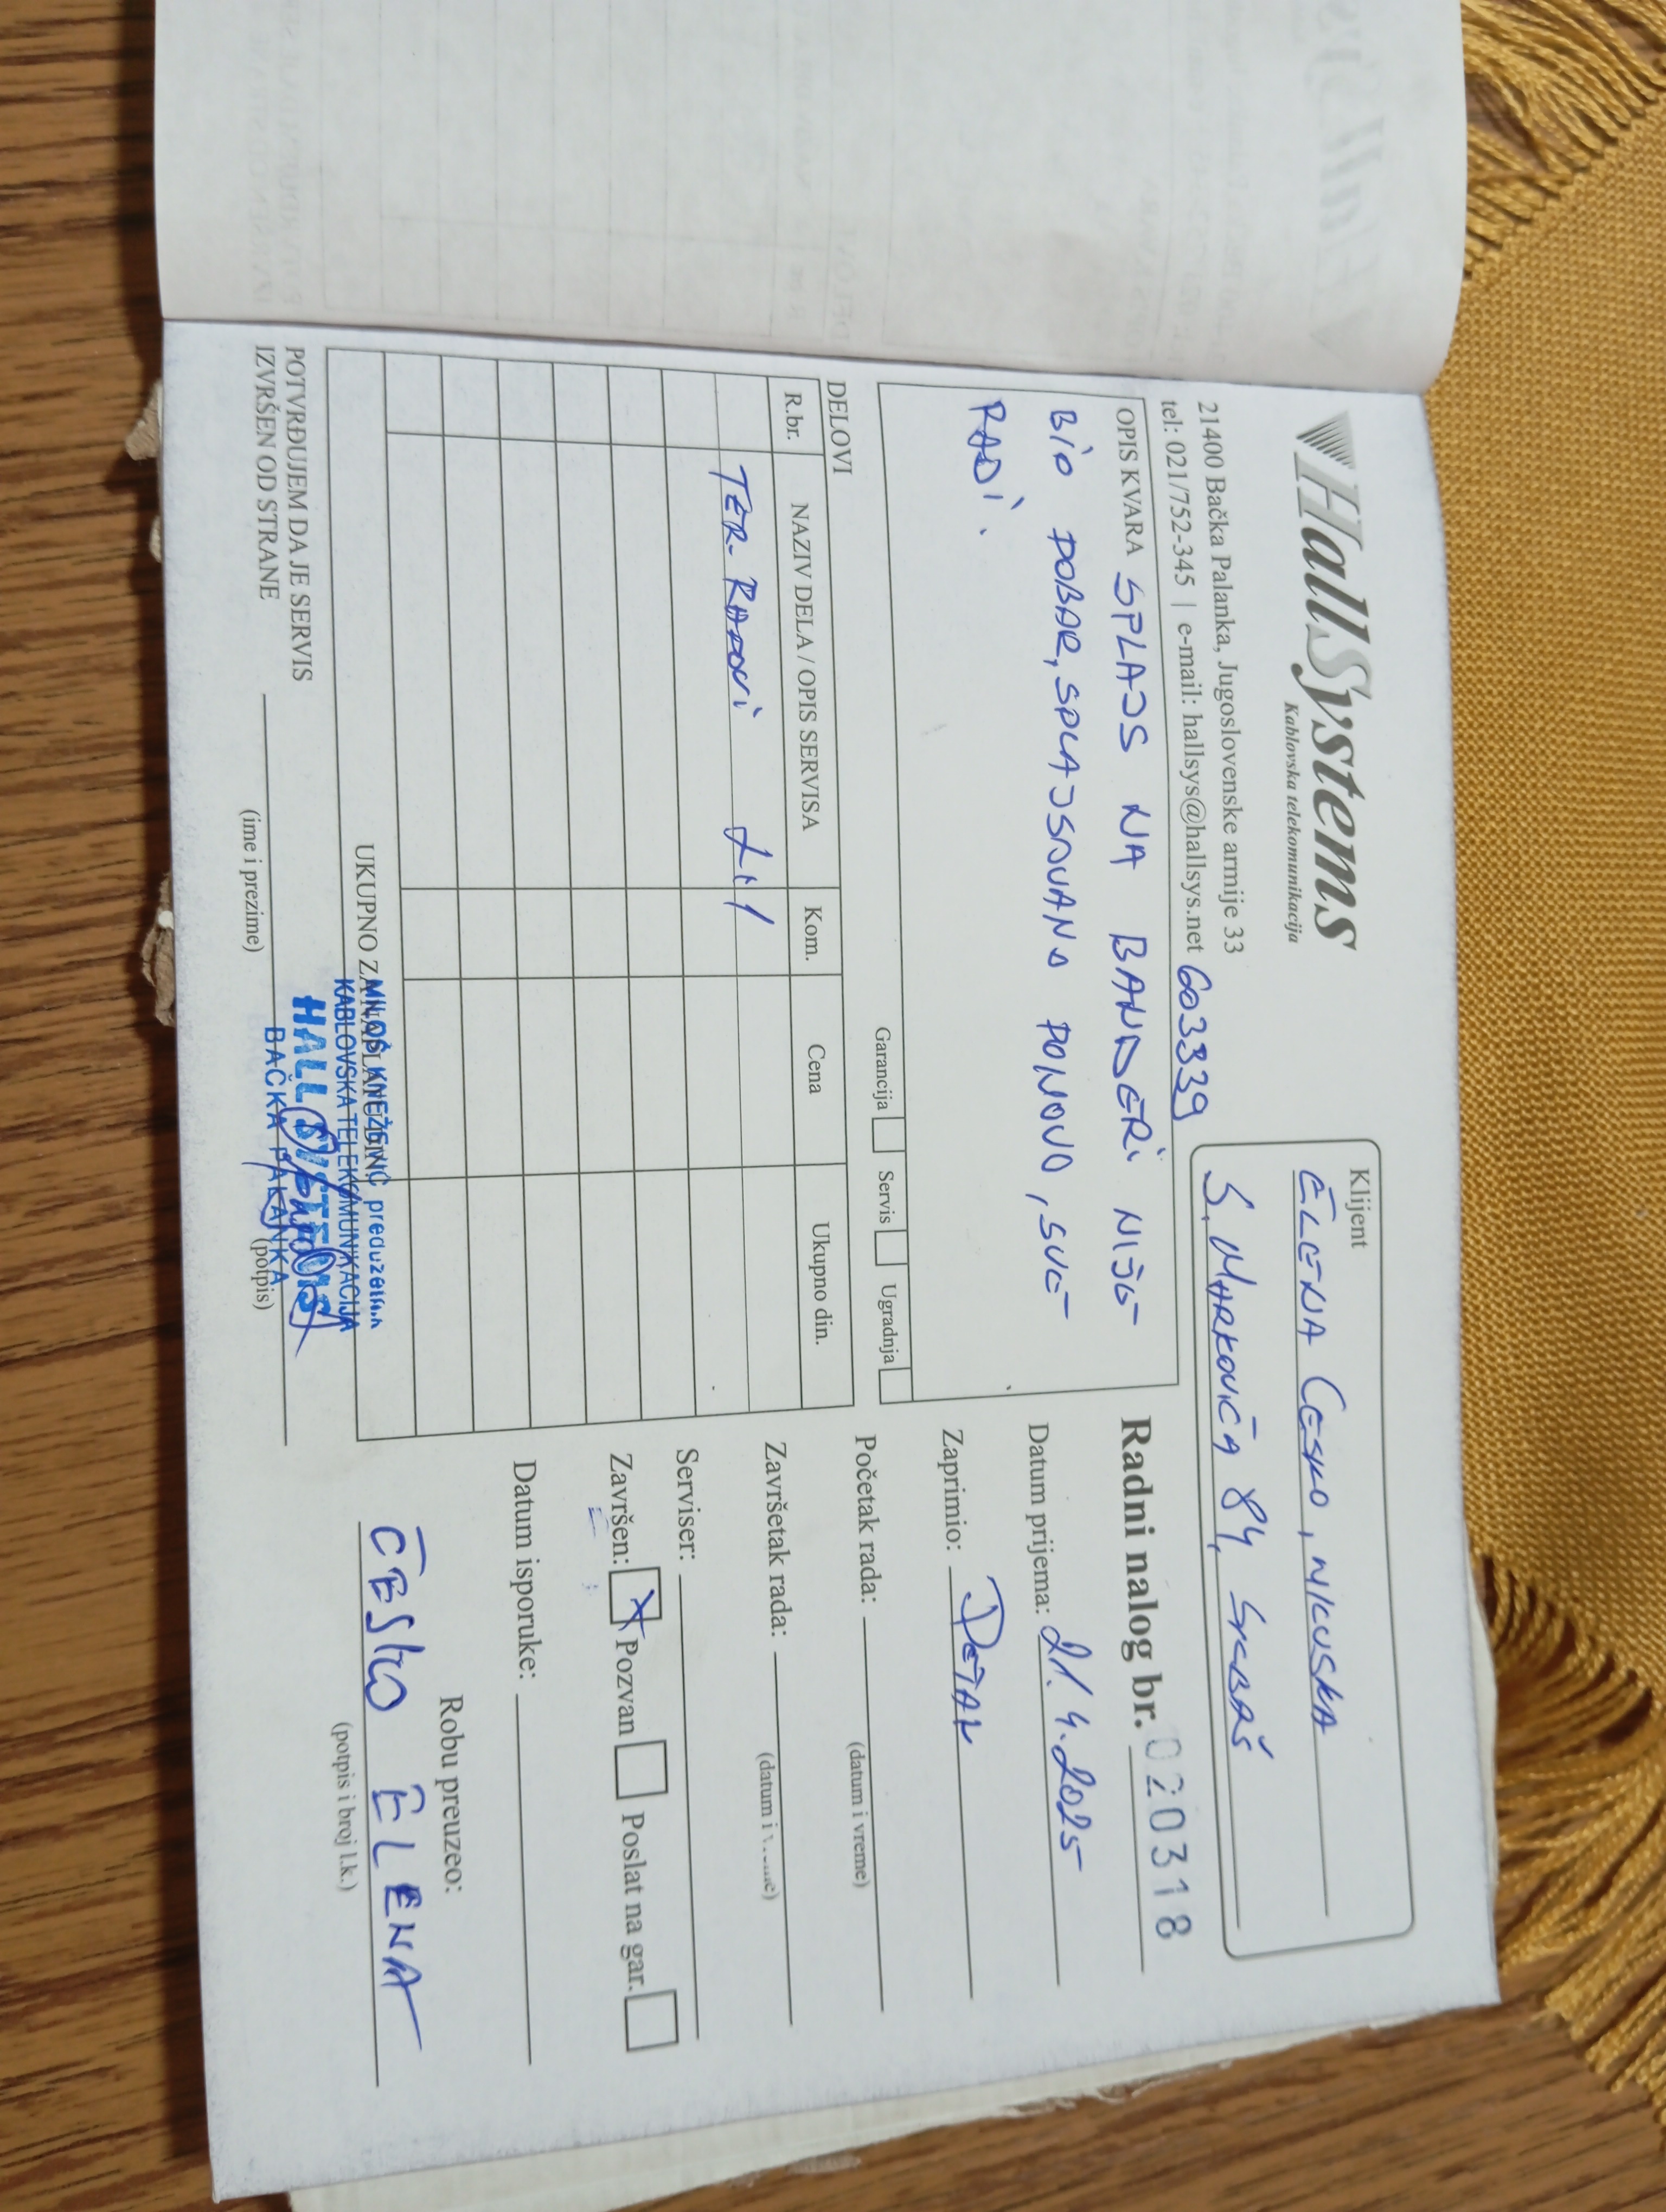 HallSystems
Kablovska telekomunikacija
21400 Bačka Palanka, Jugoslovenske armije 33
tel: 021/752-345 | e-mail: hallsys@hallsys.net 603339
Klijent
ELENA ČESKO,
S. MARKOVIĆA 84, SRBAŠ
OPIS KVARA SPLAJS NA BANDERI NIJE
BIO DOBAR, SPLAJSOVANO PONOVO, SVE
RADI.
Garancija Servis Ugradnja
Radni nalog br. 020318
Datum prijema: 21.4.2025
Zaprimio: PETAR
Početak rada:
(datum i vreme)
Završetak rada:
(datum i vreme)
Serviser:
Završen: X Pozvan Poslat na gar.
Datum isporuke:
Robu preuzeo:
ČESKO ELENA
(potpis i broj l.k.)
DELOVI
R.br. NAZIV DELA / OPIS SERVISA Kom. Cena Ukupno din.
TER. RADOVI
UKUPNO ZA NAPLATU DIN.
MILOŠ KNEŽEVIĆ preduzetnik
KABLOVSKA TELEKOMUNIKACIJA
HALL SISTEMS
BAČKA PALANKA
POTVRĐUJEM DA JE SERVIS
IZVRŠEN OD STRANE
(ime i prezime) (potpis)